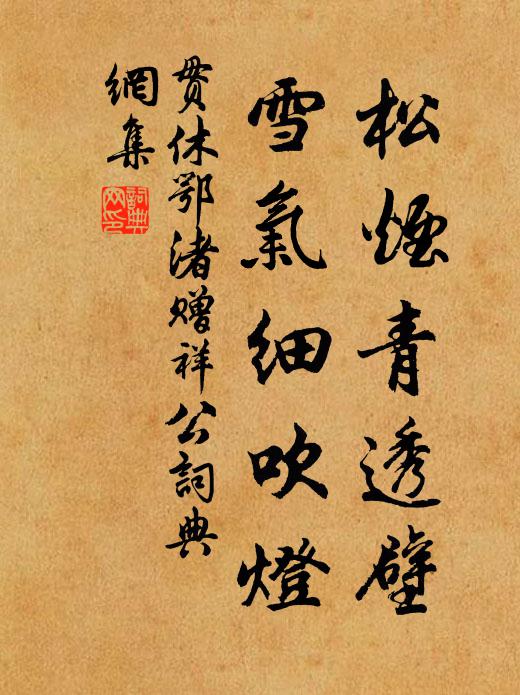 松煙青透壁
雪氣細吹燈
貫休鄂渚贈祥公詞典
網集
詞典網印